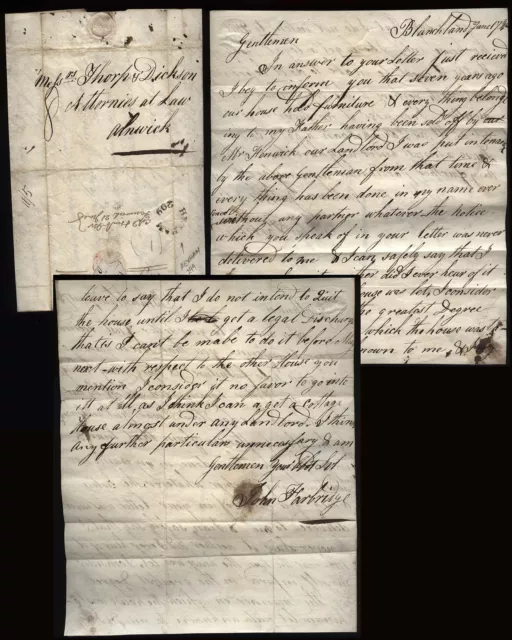 Mess.rs Thorp & Dickson
Attornies at Law
Alnwick
8
209
Blanchland June 17
Gentlemen
In answer to your Letter just recieved
I beg to inform you that seven years ago
our house hold furniture & every thing belong
ing to my Father having been sold off by
Mr Fenwick our Landlord I was put in tenant
by the above gentleman from that time &
every thing has been done in my name ever
since without any partner whatever the notice
which you speak of in your letter was never
delivered to me & I can safely say that I
did I ever hear of it
was lot, I consider
greatest degree
which the house was
known to me, &
leave to say that I do not intend to Quit
the house, until I get a legal Discharge
that is I can't be made to do it before May
next - with respect to the other House you
mention I consider it no favor to go into
itt at all, as I think I can a got a Cottage
House almost under any Landlord. I think
any further particulars unnecessary & am
Gentlemen your Obt Svt
John Farbridge